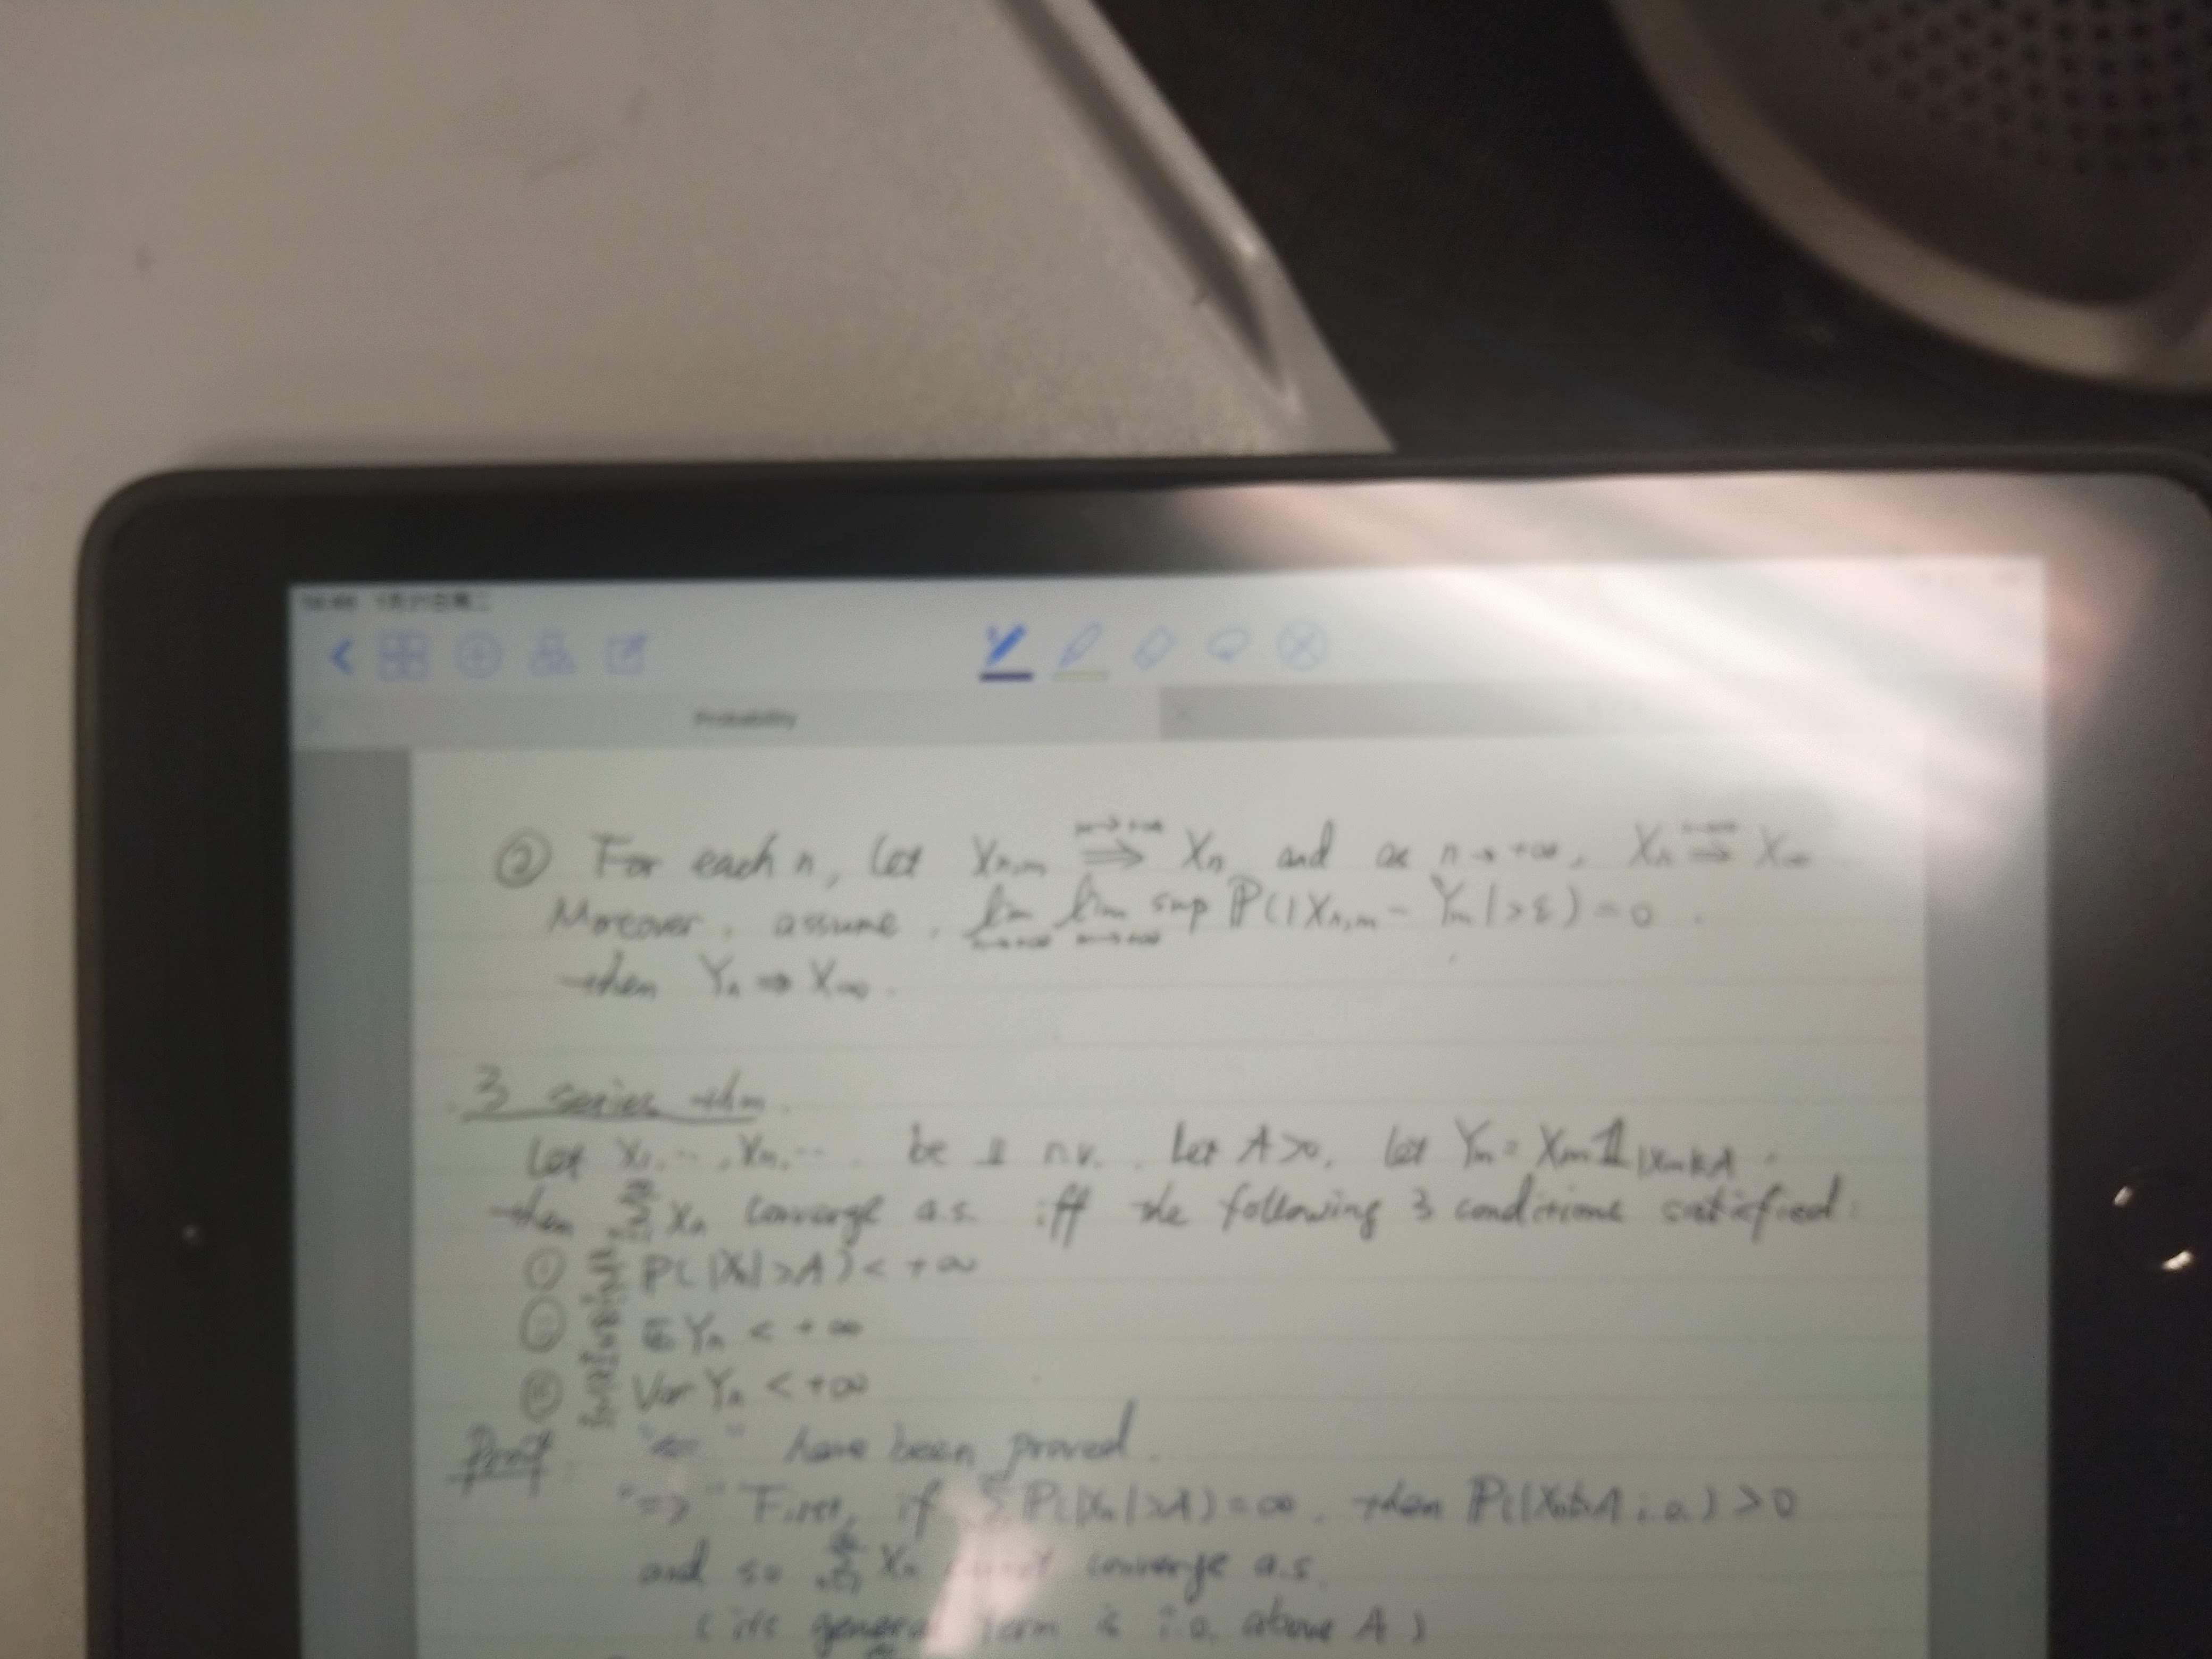 Probability
② For each n, let Xₙ,ₘ ⟹ Xₙ and as n→+∞, Xₙ ⟹ X∞
Moreover, assume, lim lim sup ℙ(|Xₙ,ₘ - Yₘ|>ε) = 0.
then Yₙ ⇒ X∞.
3 series thm.
Let X₁,…,Xₙ,… be ⫫ r.v. Let A>0, let Yₘ = Xₘ𝟙|Xₘ|≤A.
then Σ Xₙ converge a.s. iff the following 3 conditions satisfied:
① Σ ℙ(|Xₙ|>A) < +∞
Σ 𝔼Yₙ < +∞
Σ Var Yₙ < +∞
Proof. "⇐" have been proved.
"⇒" First, if Σ ℙ(|Xₙ|>A) = ∞, then ℙ(|Xₙ|>A i.o.) > 0
and so Σ Xₙ converge a.s.
(its general term is i.o. above A)